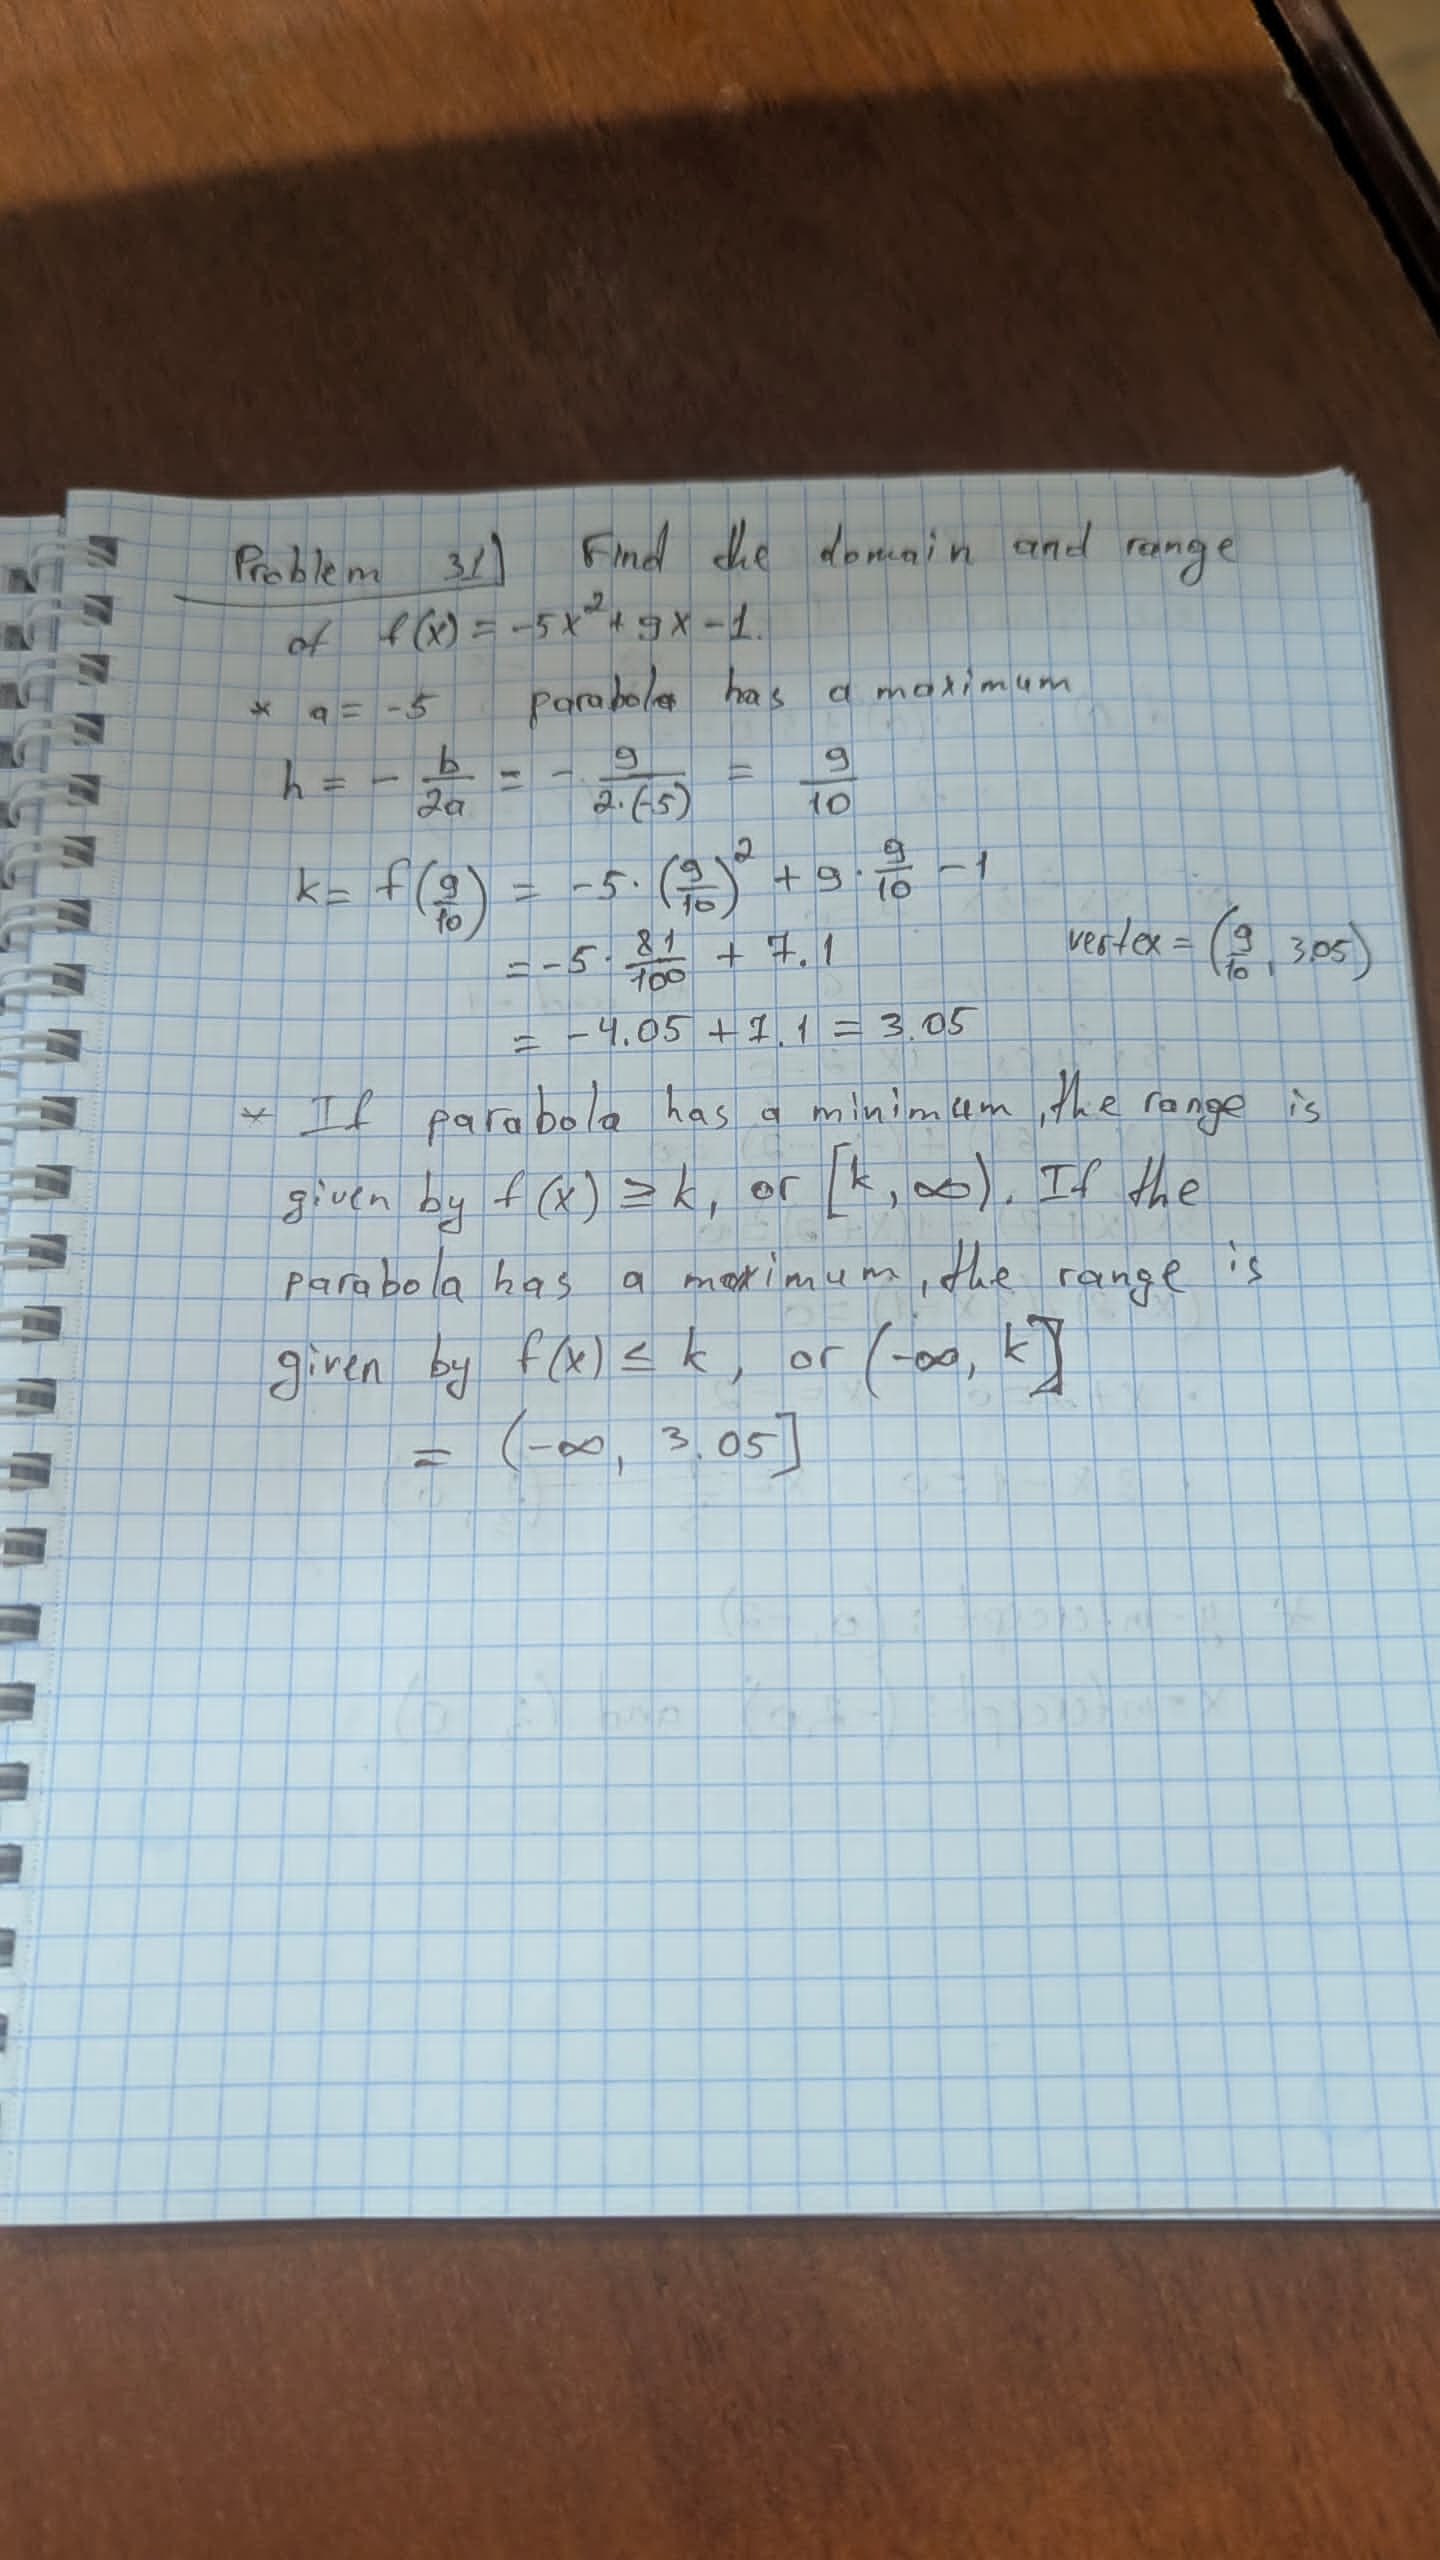 Problem 31] Find the domain and range
of f(x) = -5x² + 9x - 1.
* a = -5 parabola has a maximum
h = - b/2a = - 9/2·(-5) = 9/10
k = f(9/10) = -5·(9/10)² + 9·9/10 - 1
= -5·81/100 + 7.1
vertex = (9/10, 3.05)
= -4.05 + 7.1 = 3.05
* If parabola has a minimum, the range is
given by f(x) ≥ k, or [k, ∞). If the
parabola has a maximum, the range is
given by f(x) ≤ k, or (-∞, k]
= (-∞, 3.05]